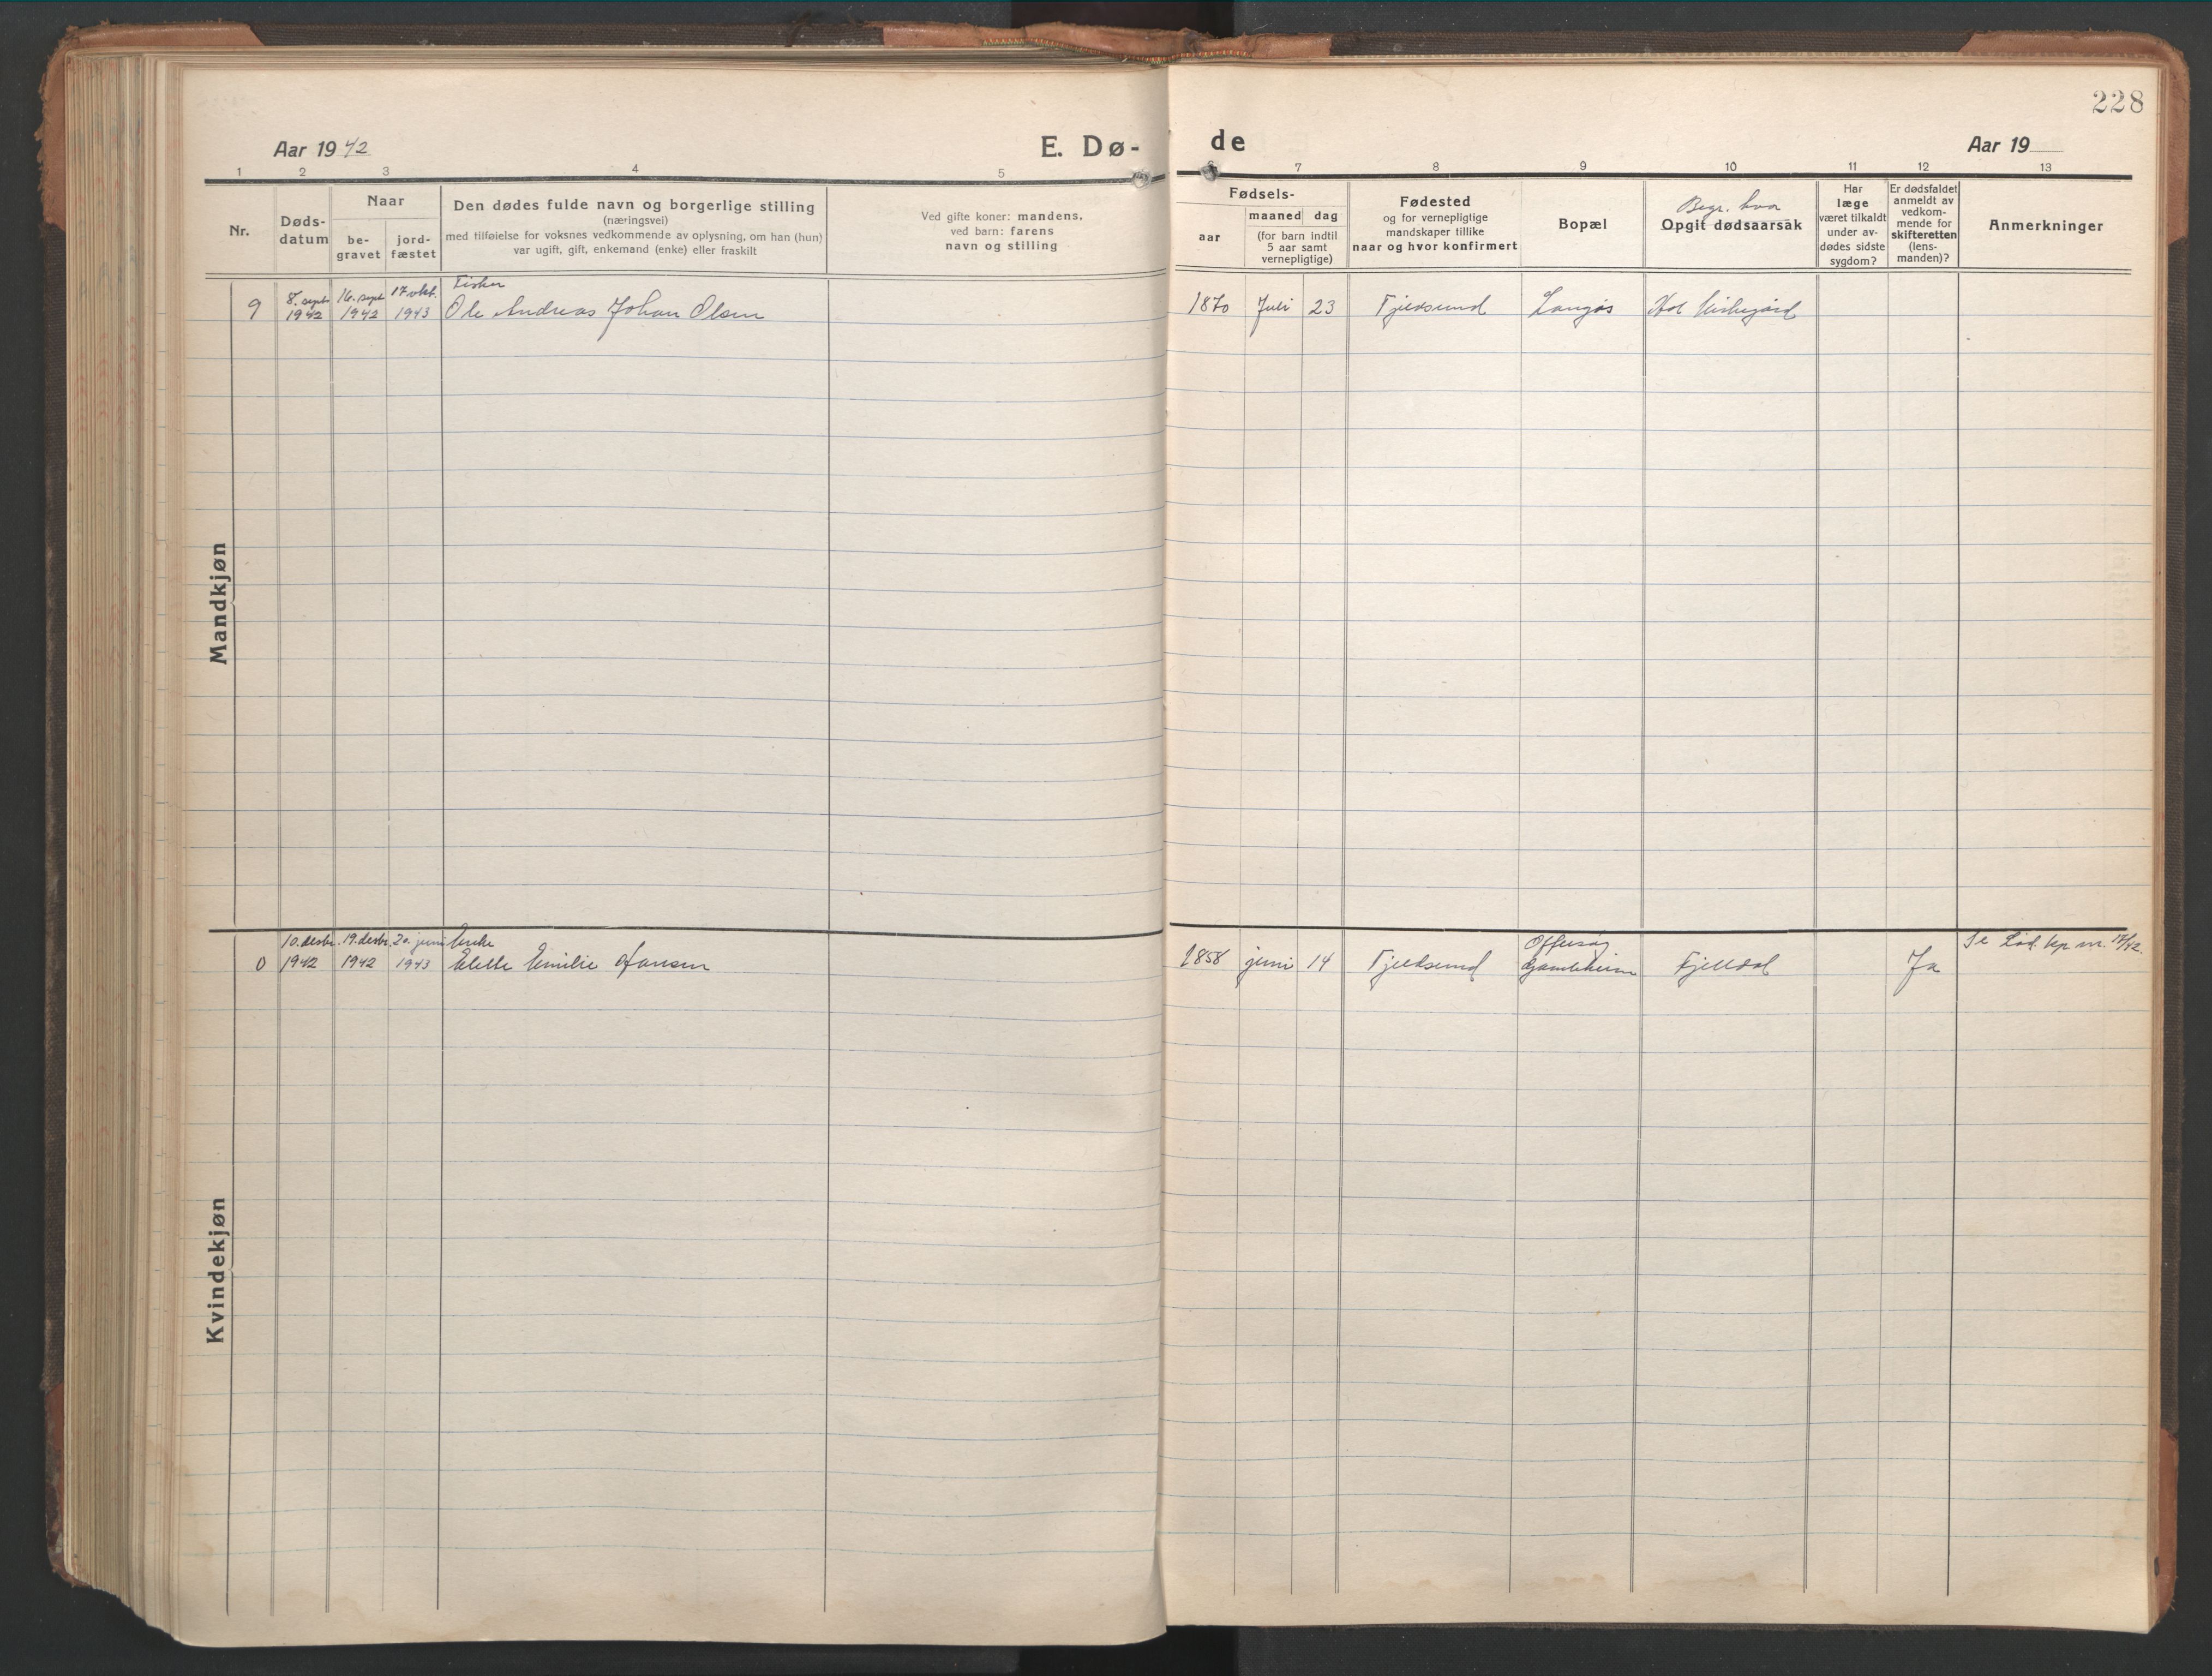 228
Aar 1942
E. Dø-
de
Aar 19
1 2 3 4 5 6 7 8 9 10 11 12 13
Nr.
Døds-
datum
Naar
be-
gravet
jord-
fæstet
Den dødes fulde navn og borgerlige stilling
(næringsvei)
med tilføielse for voksnes vedkommende av oplysning, om han (hun)
var ugift, gift, enkemand (enke) eller fraskilt
Ved gifte koner: mandens,
ved barn: farens
navn og stilling
Fødsels-
aar
maaned dag
(for barn indtil
5 aar samt
vernepligtige)
Fødested
og for vernepligtige
mandskaper tillike
naar og hvor konfirmert
Bopæl
Begr. hvor
Opgit dødsaarsak
Har
læge
været tilkaldt
under av-
dødes sidste
sygdom?
Er dødsfaldet
anmeldt av
vedkom-
mende for
skifteretten
(lens-
manden)?
Anmerkninger
Mandkjøn
8. sept. 16. sept 17 okt. Fisker
9 1942 1942 1943 Ole Andreas Johan Olsen 1870 Juli 23 Fjeldsund Langøs Hol kirkegård
Kvindekjøn
10. desbr. 19. desbr. 20. juni Enke Offersøy Se Lød. kp nr. 17/42.
0 1942 1942 1943 Elette Emilie Hansen 1858 juni 14 Fjeldsund Fjelldal Ja